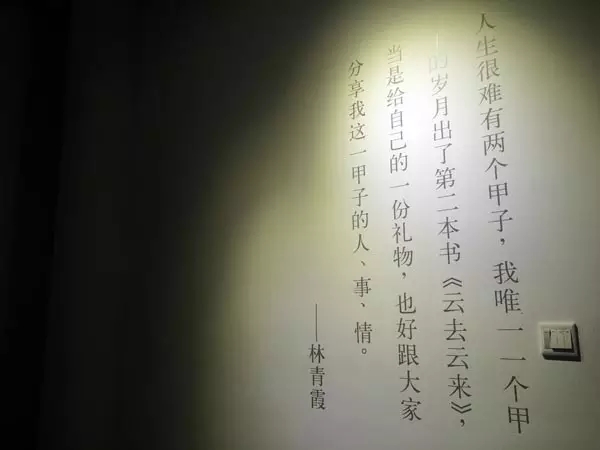 人生很难有两个甲子，我唯一一个甲
的岁月出了第二本书《云去云来》，
当是给自己的一份礼物，也好跟大家
分享我这一甲子的人、事、情。
——林青霞